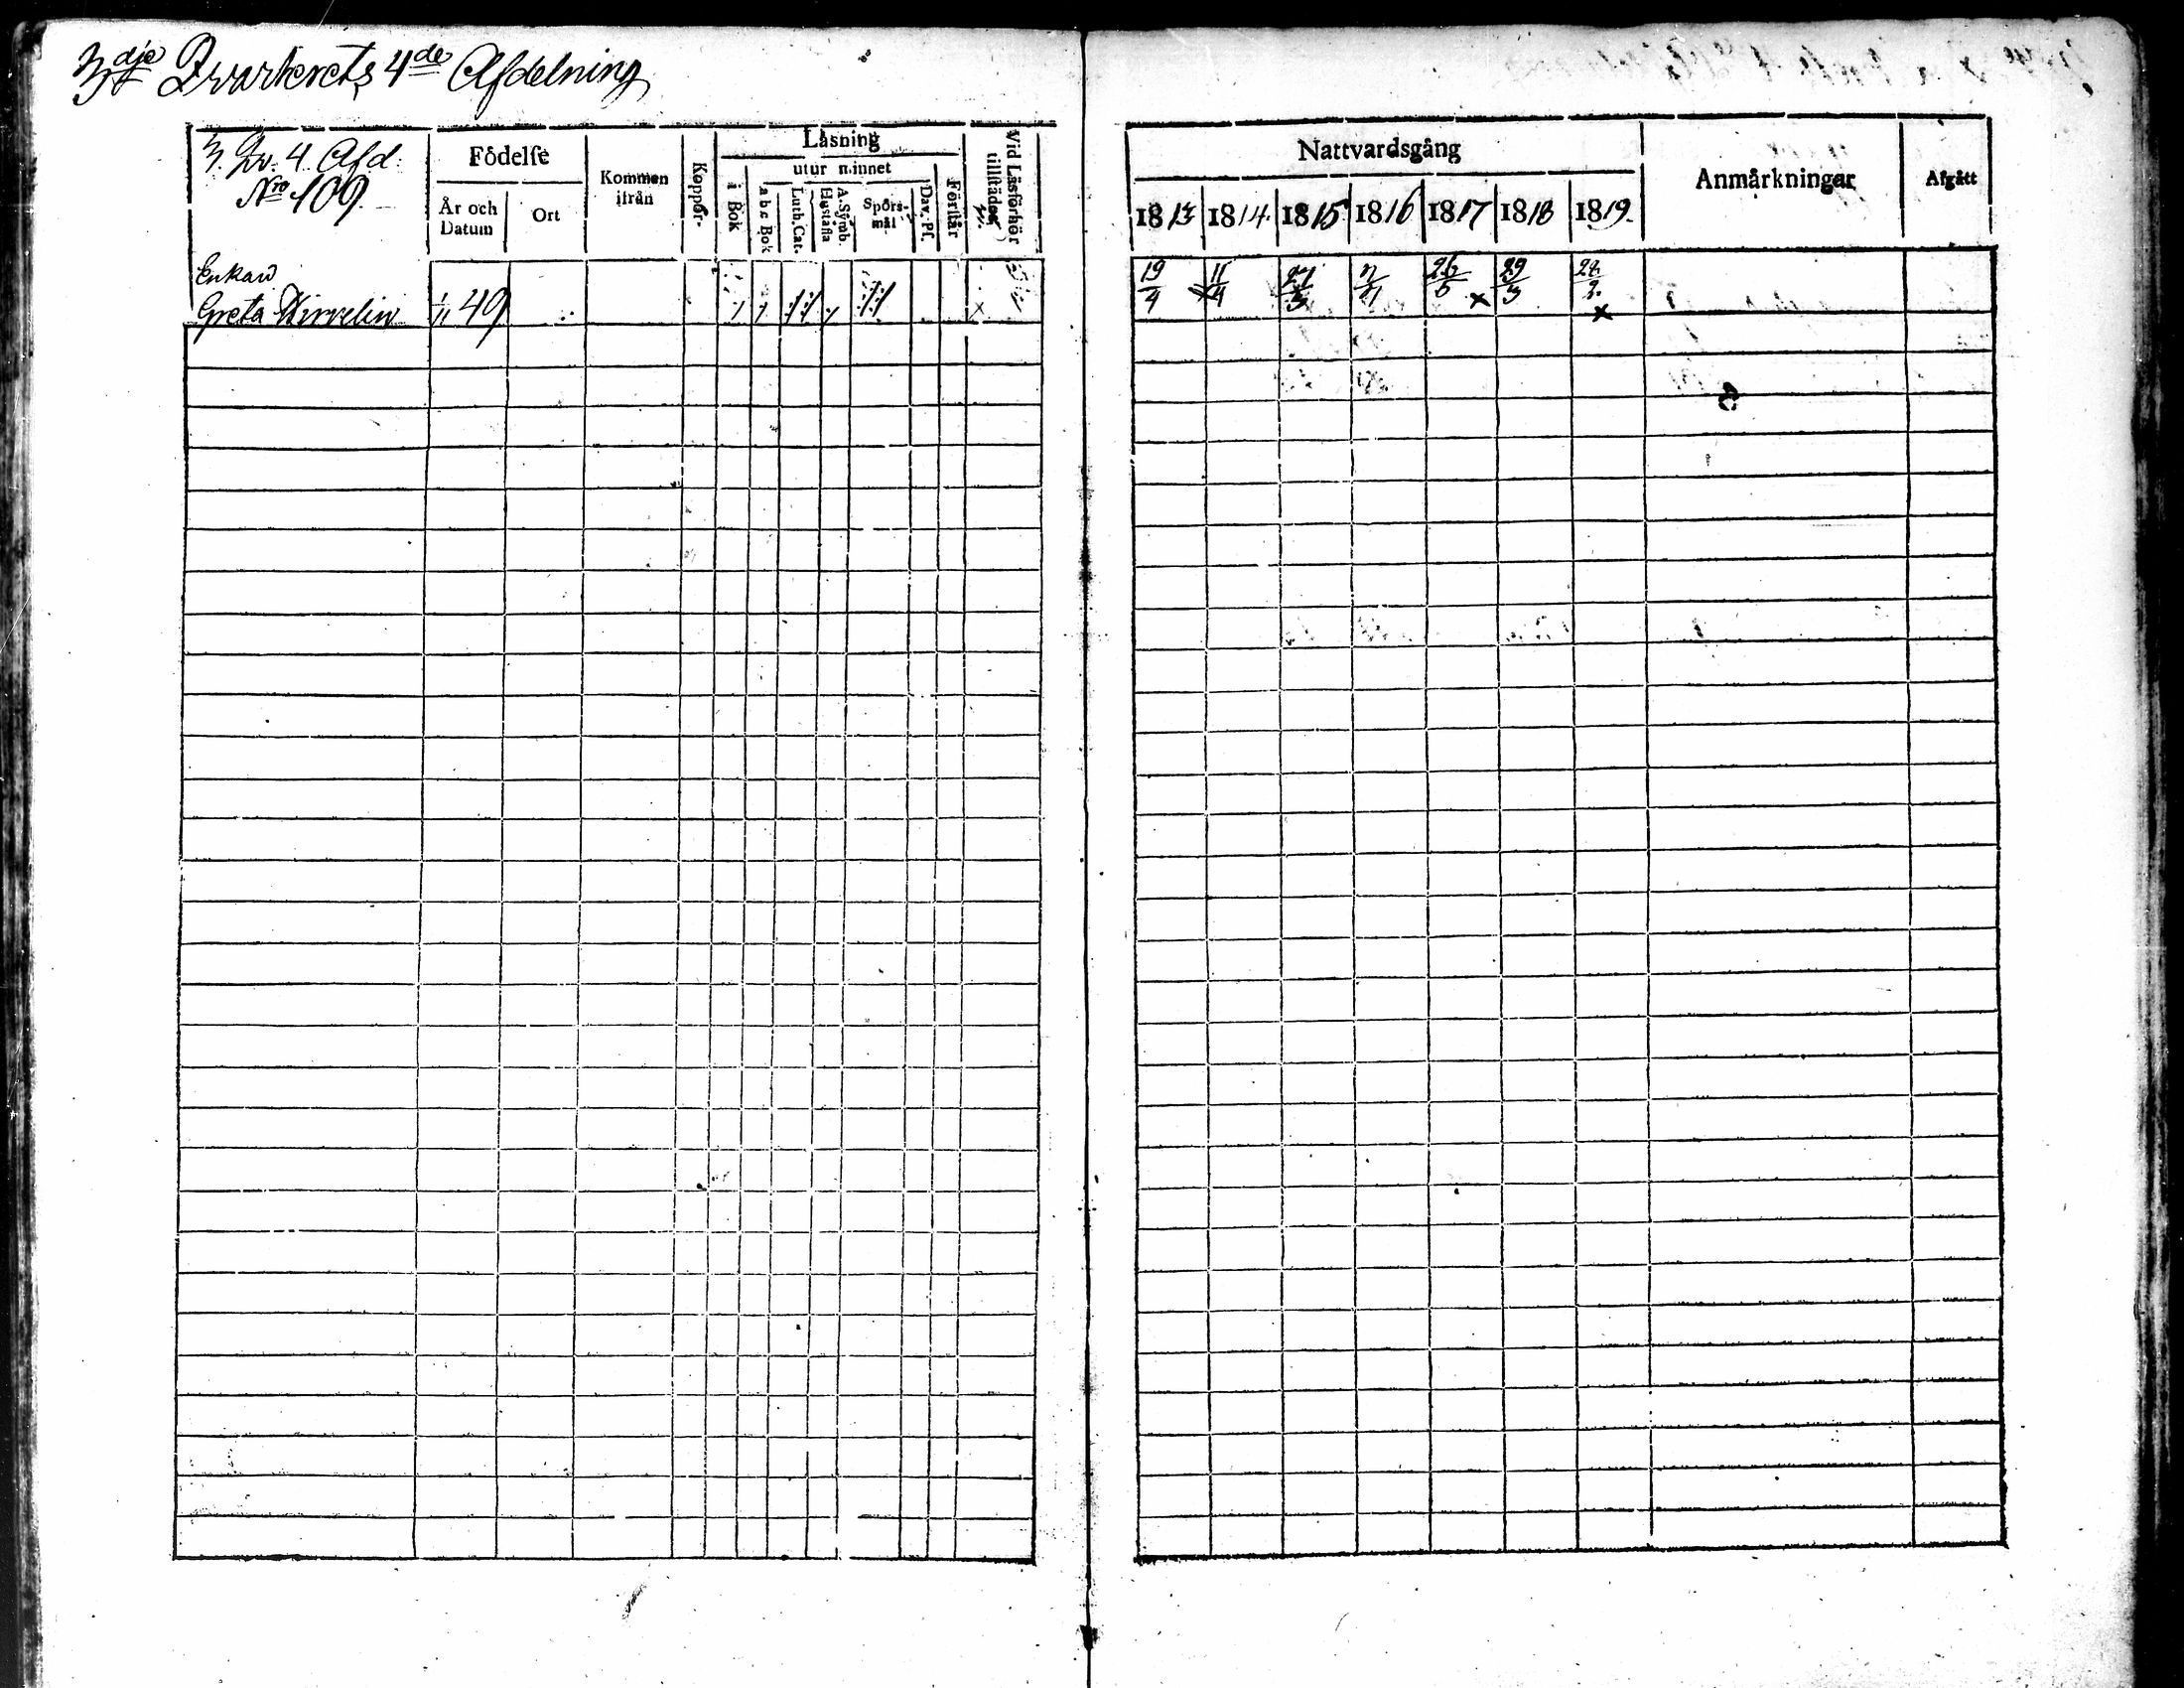 3dje Qvarterets 4de Afdelning
3. Qv. 4. Afd.
Nro 109.
Födelse
År och Datum
Ort
Kommen ifrån
Koppor
Läsning
i Bok
utur minnet
a b c Bok
Luth. Cat.
A. Symb. Hustafla
Spörs-mål
Dav. Ps.
Förstår
Vid Läsförhör tillstädes
Nattvardsgång
1813 1814. 1815 1816 1817 1818 1819.
Anmärkningar
Afgått
Enkan
Greta 1/11 49
19/4 11/4 26/5 29/3